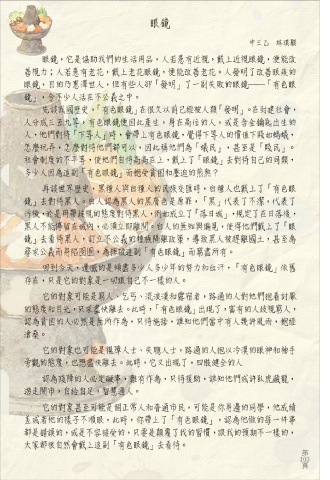 眼鏡
中三乙 林琪順
眼鏡，它是協助我們的生活用品。人若患有近視，戴上近視眼鏡，便能改
善視力；人若患有老花，戴上老花眼鏡，便能改善老花。人發明了改善眼疾的
眼鏡，目的乃惠澤世人。但有些人卻「發明」了一副失敗的眼鏡——「有色眼
鏡」，令不少人活在不公義之中。
先談我國歷史，「有色眼鏡」在很久以前已經被人類「發明」。在封建社會，
人分成三五九等，有色眼鏡便因此產生。身在高位的人，或是含金鑰匙出生的
人，他們對待「下等人」時，會帶上有色眼鏡，覺得下等人的價值下賤如螞蟻，
怎麼玩弄，怎麼對待他們都可以，因此稱他們為「蟻民」，甚至是「賤民」。
社會制度的不平等，使他們自恃高高在上，戴上了「眼鏡」去對待自己的同類，
多少人因為這副「有色眼鏡」而飽受貧困和壓迫的煎熬？
再談世界歷史，黑種人與白種人的民族交匯時，白種人也戴上了「有色眼
鏡」去對待黑人。白人認為黑人的黑膚色是原罪，「黑」代表了不潔，代表了
污穢，於是用帶歧視的態度對待黑人，例如成立了「落日城」，規定了在日落後，
黑人不能停留在城內，必須立即離開。白人的無知與偏見，使得他們戴上了「眼
鏡」去看待黑人，訂立不公義的種族隔離政策，導致黑人被趕離國土，甚至為
尋求公義而身陷囹圄，為掙破這副「有色眼鏡」而窮盡所有。
切到今天，遺憾的是傾盡多少人多少年的努力和血汗，「有色眼鏡」依舊
存在，只是它的對象是一切跟自己不一樣的人。
它的對象可能是窮人、乞丐、流浪漢和露宿者，路過的人對他們抱著討厭
的態度和目光，只求盡快離去。此時，「有色眼鏡」出現了，富有的人歧視窮人，
認為貧困的人必然是無所作為，只待施捨，誰知他們當中有人幾許風雨，飽經
滄桑。
它的對象也可能是視障人士、失聰人士。路過的人抱以冷漠的眼神和袖手
旁觀的態度，也想盡快離去。此時，它又出現了，四肢健全的人
認為殘障的人必定礙事，難有作為，只待援助，誰知他們或許臥虎藏龍，
遊走鬧市，自給自足，智慧過人。
它的對象甚至可能是個正常人和普通市民，可能是你身邊的同學，他成績
差或者他的樣子不順眼，此時，你帶上了「有色眼鏡」，認為他做的每一件事
都是錯誤的，或是不容接受的，只要是顛覆了我的習慣，跟我的預期不一樣的，
大家都很自然會戴上這副「有色眼鏡」去看待。
第
103
頁